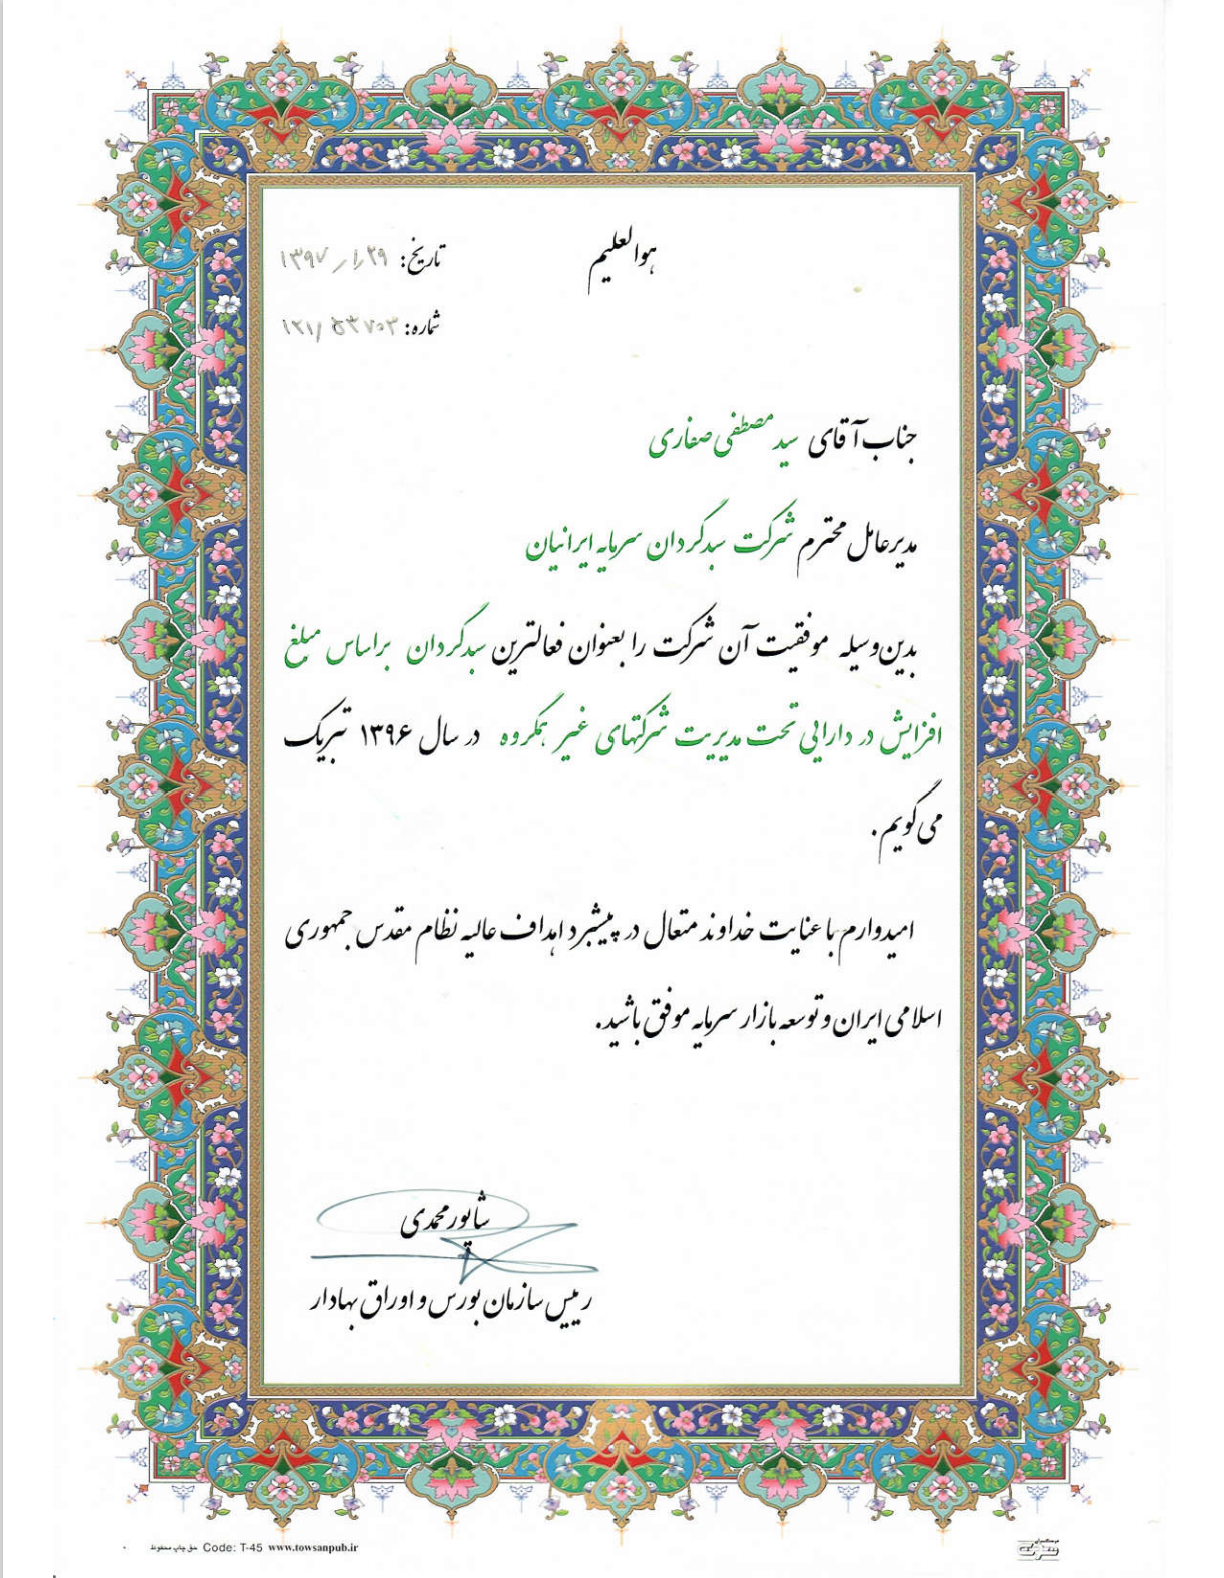 هوالعلیم
تاریخ: ۱۳۹۷/۱/۲۹
شماره: ۱۲۱/۵۳۷۰۳
جناب آقای سید مصطفی صفاری
مدیرعامل محترم شرکت سبدگردان سرمایه ایرانیان
بدین‌وسیله موفقیت آن شرکت را بعنوان فعالترین سبدگردان براساس مبلغ
افزایش در دارایی تحت مدیریت شرکتهای غیر همگروه در سال ۱۳۹۶ تبریک
می‌گویم.
امیدوارم با عنایت خداوند متعال در پیشبرد اهداف عالیه نظام مقدس جمهوری
اسلامی ایران و توسعه بازار سرمایه موفق باشید.
شاپور محمدی
رییس سازمان بورس و اوراق بهادار
حق چاپ محفوظ Code: T-45 www.towsanpub.ir